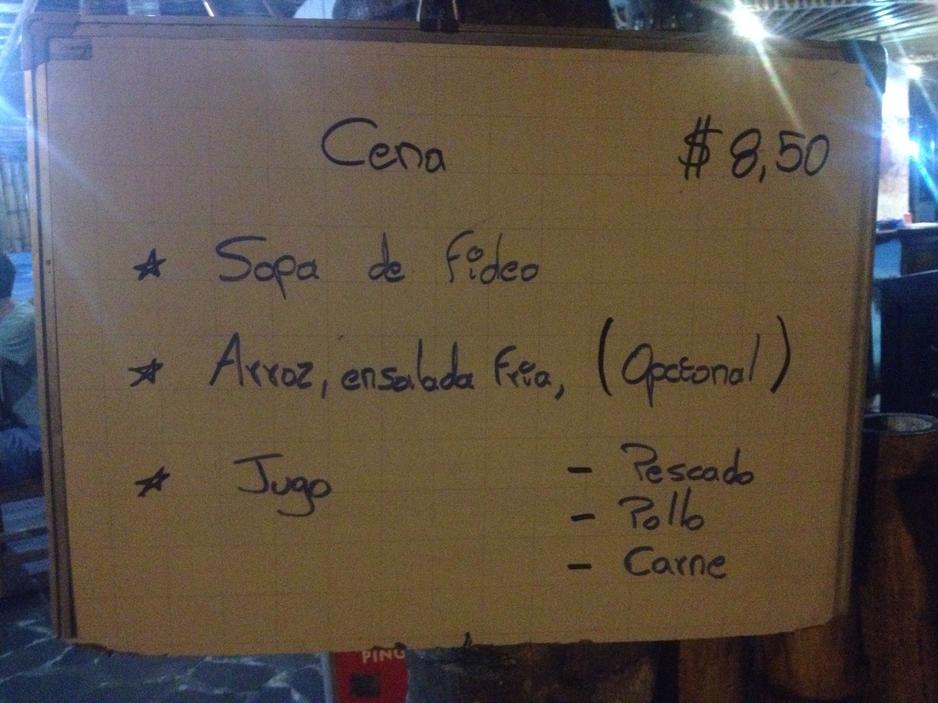 Cena $ 8,50
* Sopa de Fideo
* Arroz, ensalada Fria, (Opcional)
* Jugo
- Pescado
- Pollo
- Carne
PING